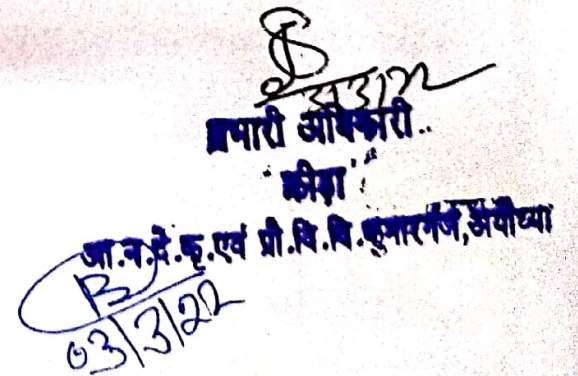 3/3/22
प्रभारी अधिकारी..
क्रीड़ा
आ.न.दे.कृ.एवं प्रौ.वि.वि.कुमारगंज,अयोध्या
03/3/22